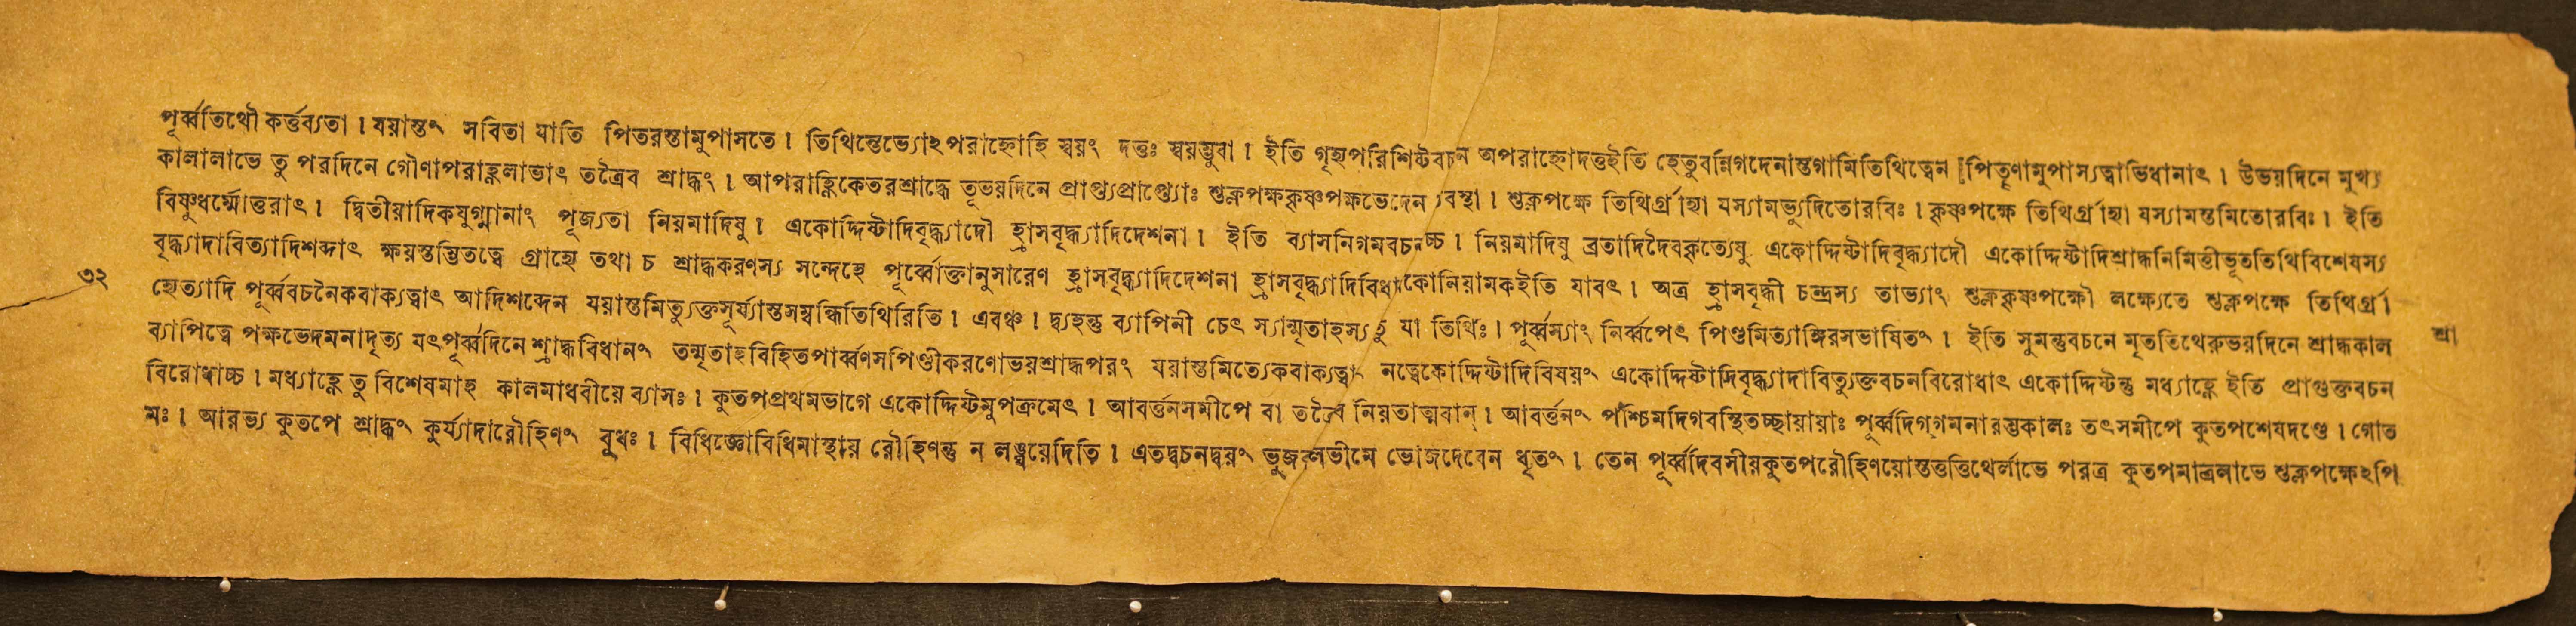 পূর্ব্বতিথৌ কর্ত্তব্যতা । যয়াস্তং সবিতা যাতি পিতরস্তামুপাসতে । তিথিন্তেভ্যোঽপরাহ্নোহি স্বয়ং দত্তঃ স্বয়ম্ভুবা । ইতি গৃহ্যপরিশিষ্টবচন অপরাহ্নোদত্তইতি হেতুবন্নিগদেনাস্তগামিতিথিত্বেন পিতৄণামুপাস্যত্বাভিধানাৎ । উভয়দিনে মুখ্য
কালালাভে তু পরদিনে গৌণাপরাহ্ণলাভাৎ তত্রৈব শ্রাদ্ধং । আপরাহ্ণিকেতরশ্রাদ্ধে তূভয়দিনে প্রাপ্ত্যপ্রাপ্ত্যোঃ শুক্লপক্ষকৃষ্ণপক্ষভেদেন ব্যবস্থা । শুক্লপক্ষে তিথির্গ্রাহ্যা যস্যামভ্যুদিতোরবিঃ । কৃষ্ণপক্ষে তিথির্গ্রাহ্যা যস্যামস্তমিতোরবিঃ । ইতি
বিষ্ণুধর্ম্মোত্তরাৎ । দ্বিতীয়াদিকযুগ্মানাং পূজ্যতা নিয়মাদিষু । একোদ্দিষ্টাদিবৃদ্ধ্যাদৌ হ্রাসবৃদ্ধ্যাদিদেশনা । ইতি ব্যাসনিগমবচনাচ্চ । নিয়মাদিষু ব্রতাদিদৈবকৃত্যেষু একোদ্দিষ্টাদিবৃদ্ধ্যাদৌ একোদ্দিষ্টাদিশ্রাদ্ধনিমিত্তীভূততিথিবিশেষস্য
বৃদ্ধ্যাদাবিত্যাদিশব্দাৎ ক্ষয়স্তম্ভিতত্বে গ্রাহ্যে তথা চ শ্রাদ্ধকরণস্য সন্দেহে পূর্ব্বোক্তানুসারেণ হ্রাসবৃদ্ধ্যাদিদেশনা হ্রাসবৃদ্ধ্যাদিবিধায়কোনিয়ামকইতি যাবৎ । অত্র হ্রাসবৃদ্ধী চন্দ্রস্য তাভ্যাং শুক্লকৃষ্ণপক্ষৌ লক্ষ্যেতে শুক্লপক্ষে তিথির্গ্রা
৩২
হ্যেত্যাদি পূর্ব্ববচনৈকবাক্যত্বাৎ আদিশব্দেন যয়াস্তমিত্যুক্তসূর্য্যাস্তসম্বন্ধিতিথিরিতি । এবঞ্চ । দ্ব্যহন্তু ব্যাপিনী চেৎ স্যান্মৃতাহস্য তু যা তিথিঃ । পূর্ব্বস্যাং নির্ব্বপেৎ পিণ্ডমিত্যাঙ্গিরসভাষিতং । ইতি সুমন্তুবচনে মৃততিথেরুভয়দিনে শ্রাদ্ধকাল
শ্রা
ব্যাপিত্বে পক্ষভেদমনাদৃত্য যৎপূর্ব্বদিনে শ্রাদ্ধবিধানং তন্মৃতাহবিহিতপার্ব্বণসপিণ্ডীকরণোভয়শ্রাদ্ধপরং যয়াস্তমিত্যেকবাক্যত্বাৎ নত্বেকোদ্দিষ্টাদিবিষয়ং একোদ্দিষ্টাদিবৃদ্ধ্যাদাবিত্যুক্তবচনবিরোধাৎ একোদ্দিষ্টন্তু মধ্যাহ্ণে ইতি প্রাগুক্তবচন
বিরোধাচ্চ । মধ্যাহ্ণে তু বিশেষমাহ কালমাধবীয়ে ব্যাসঃ । কুতপপ্রথমভাগে একোদ্দিষ্টমুপক্রমেৎ । আবর্ত্তনসমীপে বা তত্রৈব নিয়তাত্মবান্ । আবর্ত্তনং পশ্চিমদিগবস্থিতচ্ছায়ায়াঃ পূর্ব্বদিগ্গমনারম্ভকালঃ তৎসমীপে কুতপশেষদণ্ডে । গোত
মঃ । আরভ্য কুতপে শ্রাদ্ধং কুর্য্যাদারৌহিণং বুধঃ । বিধিজ্ঞোবিধিমাস্থায় রৌহিণন্তু ন লঙ্ঘয়েদিতি । এতদ্বচনদ্বয়ং ভুজবলভীমে ভোজদেবেন ধৃতং । তেন পূর্ব্বদিবসীয়কুতপরৌহিণয়োস্তত্তত্তিথের্লাভে পরত্র কুতপমাত্রলাভে শুক্লপক্ষেঽপি